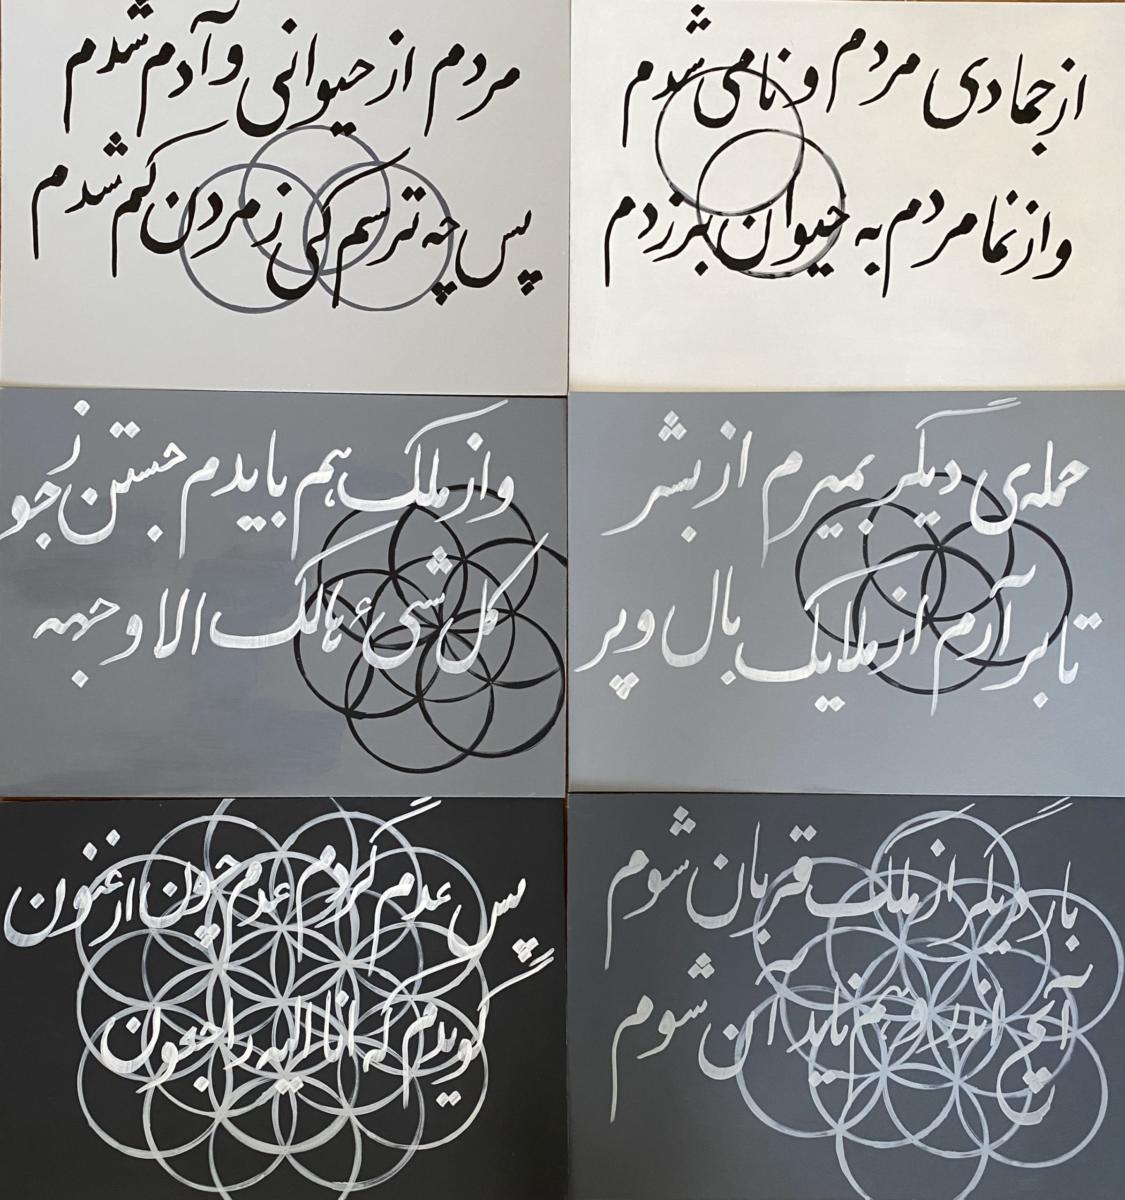 از جمادی مردم و نامی شدم
وز نما مردم به حیوان برزدم
مردم از حیوانی و آدم شدم
پس چه ترسم کی ز مردن کم شدم
حمله‌ی دیگر بمیرم از بشر
تا بر آرم از ملایک بال و پر
وز ملک هم بایدم جستن ز جو
کل شیء هالک الا وجهه
بار دیگر از ملک قربان شوم
آنچ اندر وهم ناید آن شوم
پس عدم گردم عدم چون ارغنون
گویدم که انا الیه راجعون